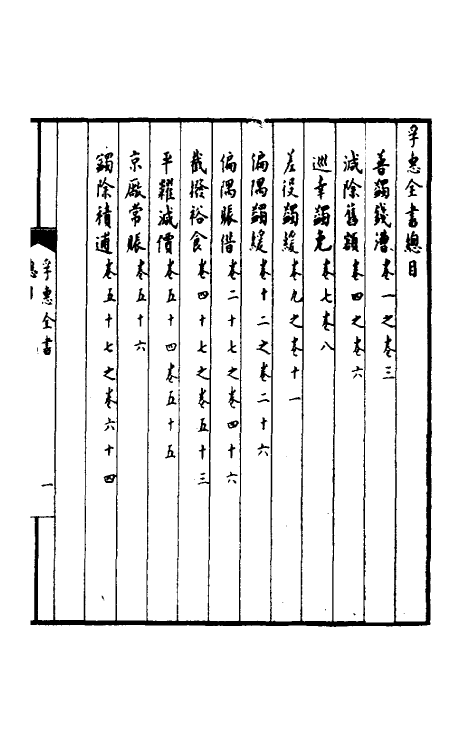 孚惠全書總目
善蠲錢漕卷一之卷三
減除舊額卷四之卷六
巡幸蠲免卷七卷八
差役蠲緩卷九之卷十一
偏隅蠲緩卷十二之卷二十六
偏隅賑借卷二十七之卷四十六
截撥裕食卷四十七之卷五十三
平糶減價卷五十四卷五十五
京廠常賑卷五十六
蠲除積逋卷五十七之卷六十四
孚惠全書
總目
一